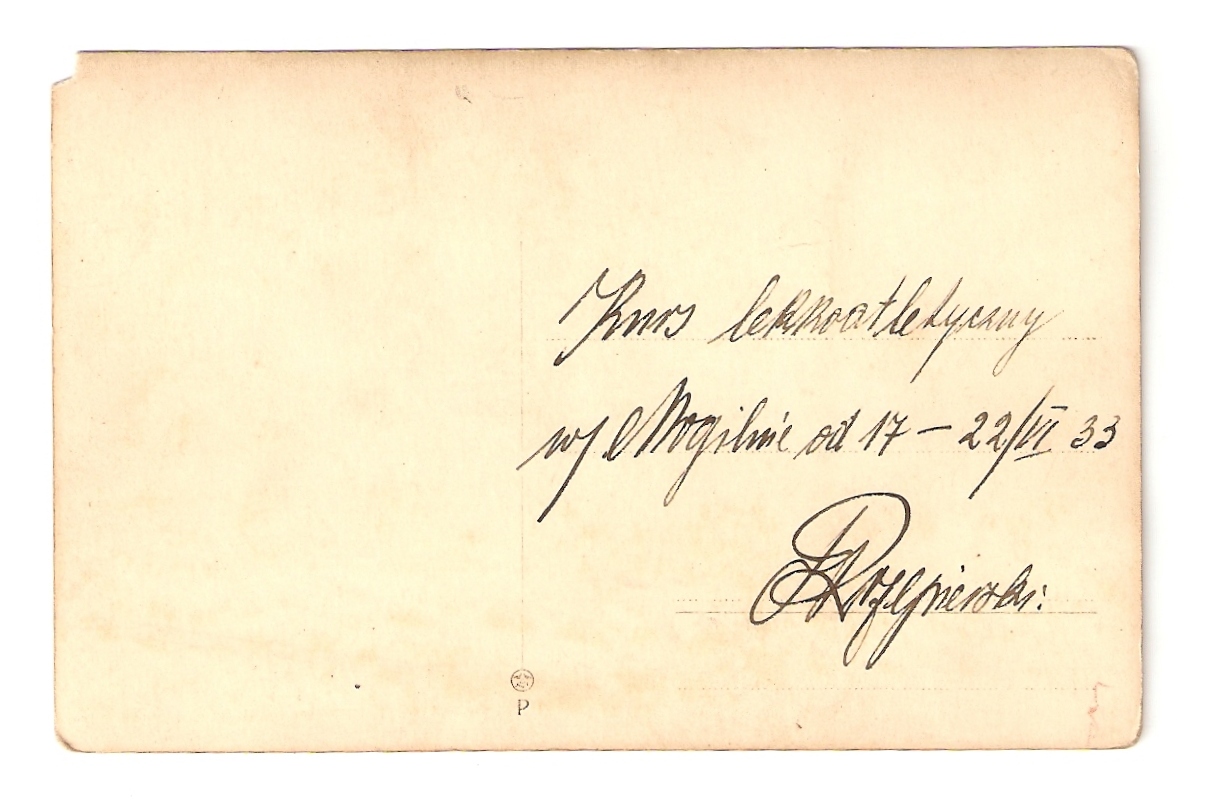 Kurs lekkoatletyczny
w/ Mogilnie od 17 – 22/VI 33
P